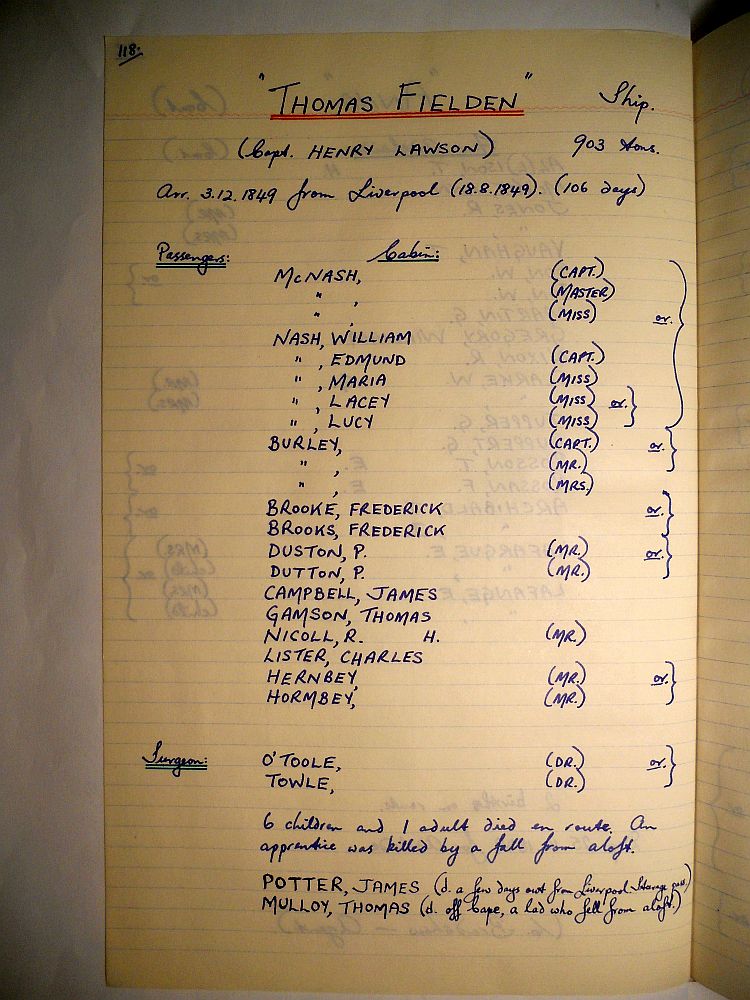 118.
"THOMAS FIELDEN" Ship.
(Capt. HENRY LAWSON) 903 tons.
Arr. 3.12.1849 from Liverpool (18.8.1849). (106 days)
Passengers: Cabin:
McNASH, (CAPT.)
" , (MASTER)
" , (MISS) or.
NASH, WILLIAM
" , EDMUND (CAPT.)
" , MARIA (MISS)
" , LACEY (MISS) or.
" , LUCY (MISS)
BURLEY, (CAPT.) or.
" , (MR.)
" , (MRS.)
BROOKE, FREDERICK or.
BROOKS, FREDERICK
DUSTON, P. (MR.) or.
DUTTON, P. (MR.)
CAMPBELL, JAMES
GAMSON, THOMAS
NICOLL, R. H. (MR.)
LISTER, CHARLES
HERNBEY, (MR.) or.
HORMBEY, (MR.)
Surgeon: O'TOOLE, (DR.) or.
TOWLE, (DR.)
6 children and 1 adult died en route. An
apprentice was killed by a fall from aloft.
POTTER, JAMES (d. a few days out from Liverpool Steerage pass.)
MULLOY, THOMAS (d. off Cape, a lad who fell from aloft.)